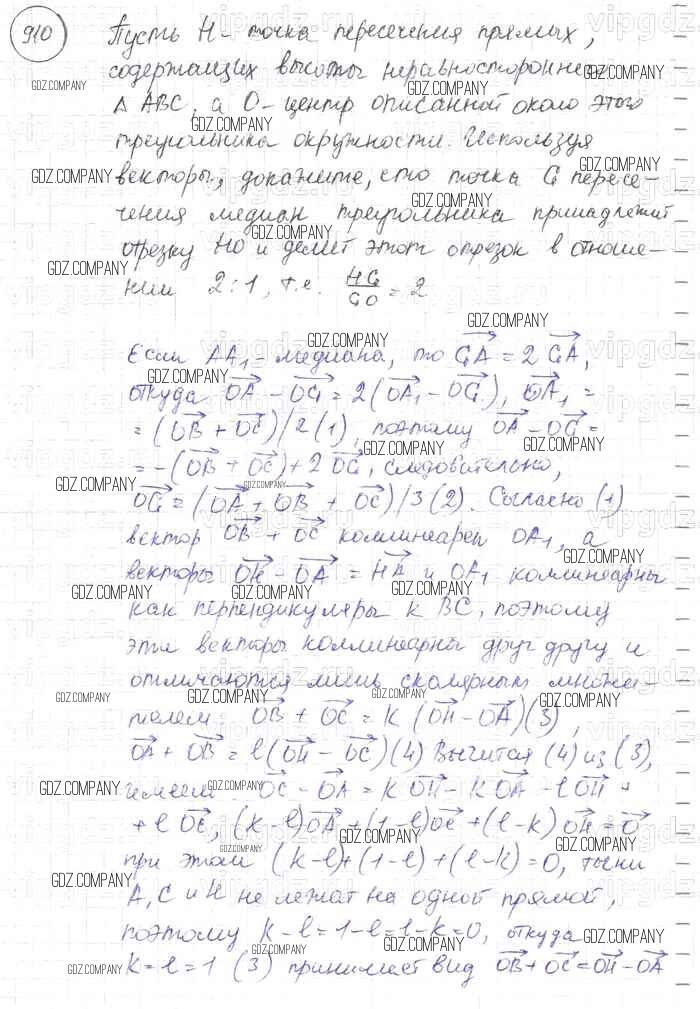 910
Пусть H - точка пересечения прямых,
содержащих высоты неравносторонне-
Δ ABC, а O - центр описанной около этого
треугольника окружности. Используя
векторы, докажите, что точка G пересе-
чения медиан треугольника принадлежит
отрезку HO и делит этот отрезок в отноше-
нии 2:1, т.е. HG/GO = 2
Если AA₁ - медиана, то GA = 2 GA,
откуда OA - OG = 2(OA₁ - OG), OA₁ =
= (OB + OC)/2 (1), поэтому OA - OG =
= -(OB + OC) + 2 OG, следовательно,
OG = (OA + OB + OC)/3 (2). Согласно (1)
вектор OB + OC коллинеарен OA₁, а
векторы OH - OA = HA и OA₁ коллинеарны
как перпендикуляры к BC, поэтому
эти векторы коллинеарны друг другу и
отличаются лишь скалярным множи-
телем: OB + OC = K (OH - OA) (3),
OA + OB = l(OH - OC) (4) Вычитая (4) из (3),
имеем: OC - OA = K OH - K OA - l OH +
+ l OC, (K-l)OA + (1-l)OC + (l-K) OH = O
при этом (K-l)+(1-l)+(l-K)=0, точки
A, C и H не лежат на одной прямой,
поэтому K-l=1-l=l-K=0, откуда
K=l=1 (3) принимает вид OB+OC=OH-OA
GDZ.COMPANY
vipgdz